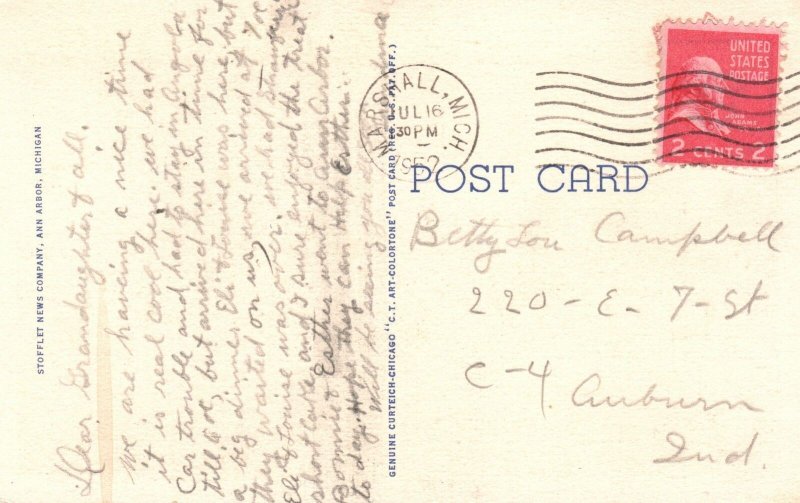 Dear Grandaughter & all,
we are having a nice time
it is real cool here we had
Car trouble and had to stay in Angola
till 6 oc, but arrived here in time for
a big dinner Eli & Louise wasn't here but
they waited on us, we arrived at 7 oc
Eli & Louise was over, we had strawberry
short cake and I sure enjoyed the treat
Bonnie & Esther went to Ann Arbor.
to day. Hope they can help Esther.
Will be seeing you Grandma
STOFFLET NEWS COMPANY, ANN ARBOR, MICHIGAN
GENUINE CURTEICH-CHICAGO "C.T. ART-COLORTONE" POST CARD (REG. U.S. PAT. OFF.)
MARSHALL, MICH.
JUL 16
30 PM
1952
UNITED
STATES
POSTAGE
JOHN
ADAMS
2 CENTS 2
POST CARD
Betty Lou Campbell
220-E-7-St
C-4. Auburn
Ind.